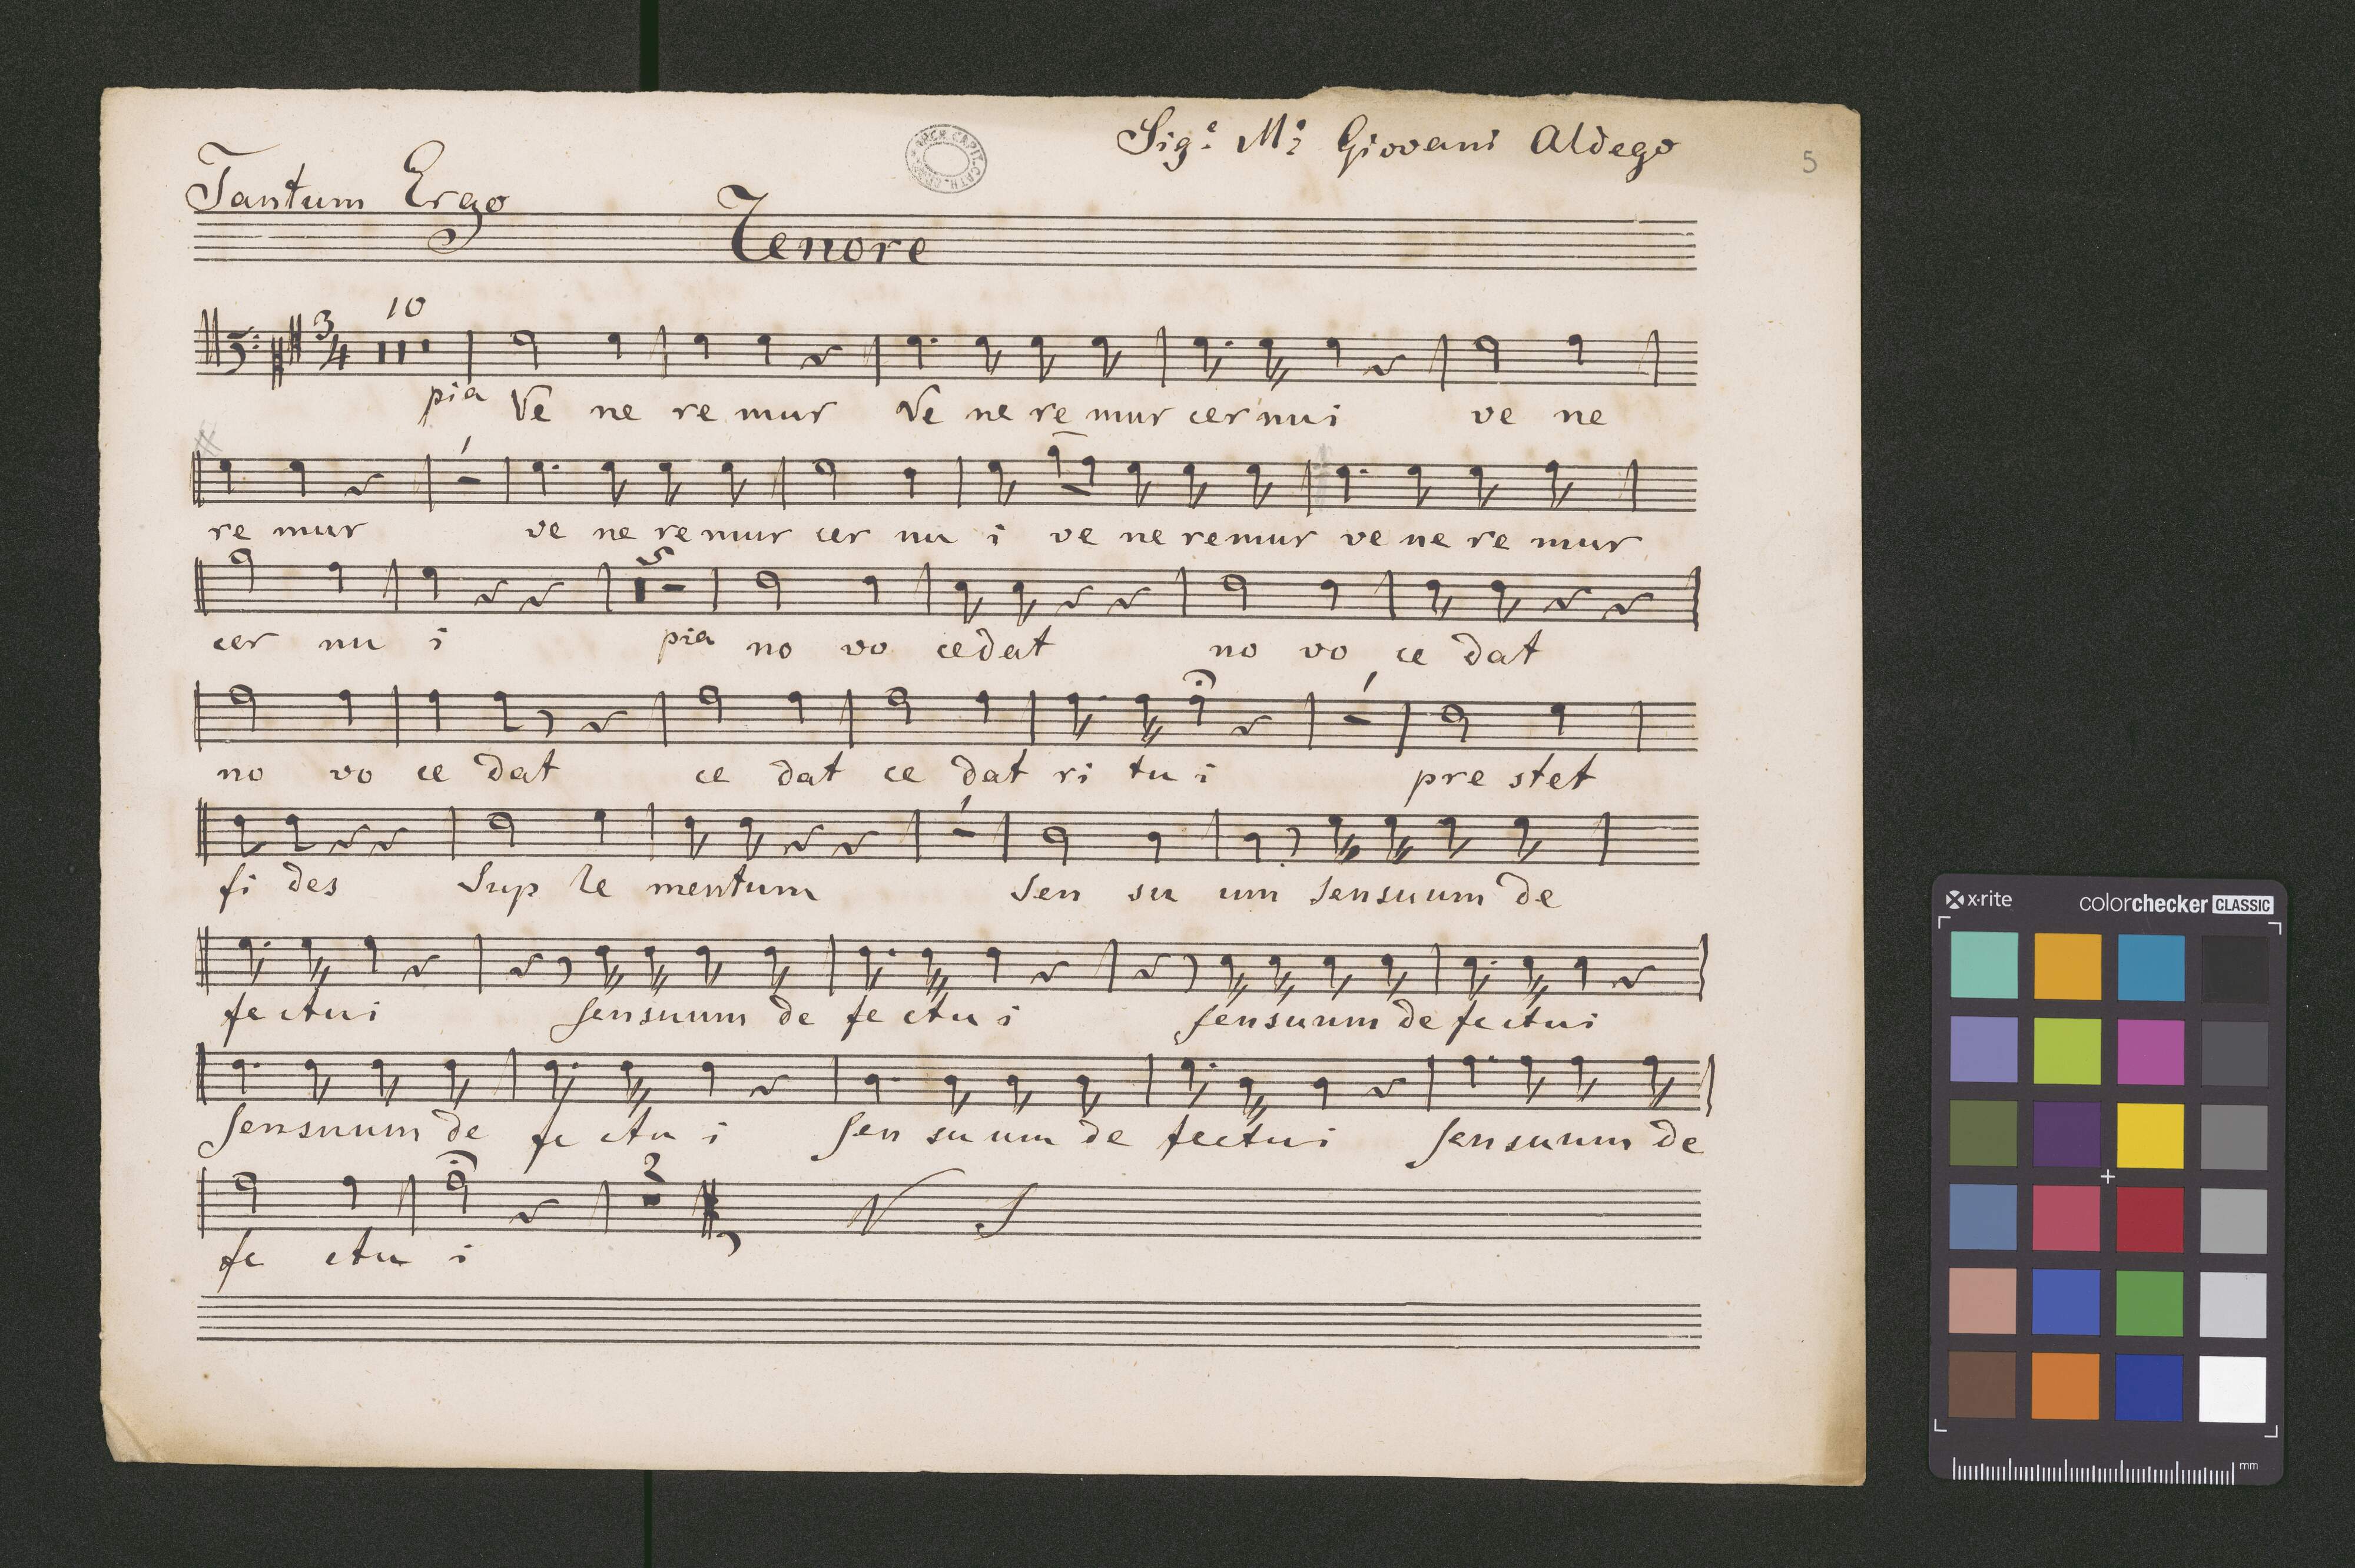 Sig.e M.o Giovani Aldego
5
Tantum Ergo
Tenore
3/4 10
pia Ve ne re mur Ve ne re mur cer nu i ve ne
re mur ve ne re mur cer nu i ve ne remur ve ne re mur
5
cer nu i pia no vo cedat no vo ce dat
no vo ce dat ce dat ce dat ri tu i pre stet
fi des Sup le mentum Sen su um Sensuum de
fectui sensuum de fe ctu i sensuum de fectui
Sensuum de fe ctu i Sen su um de fectui sensuum de
2
fe ctu i
x·rite colorchecker CLASSIC
mm